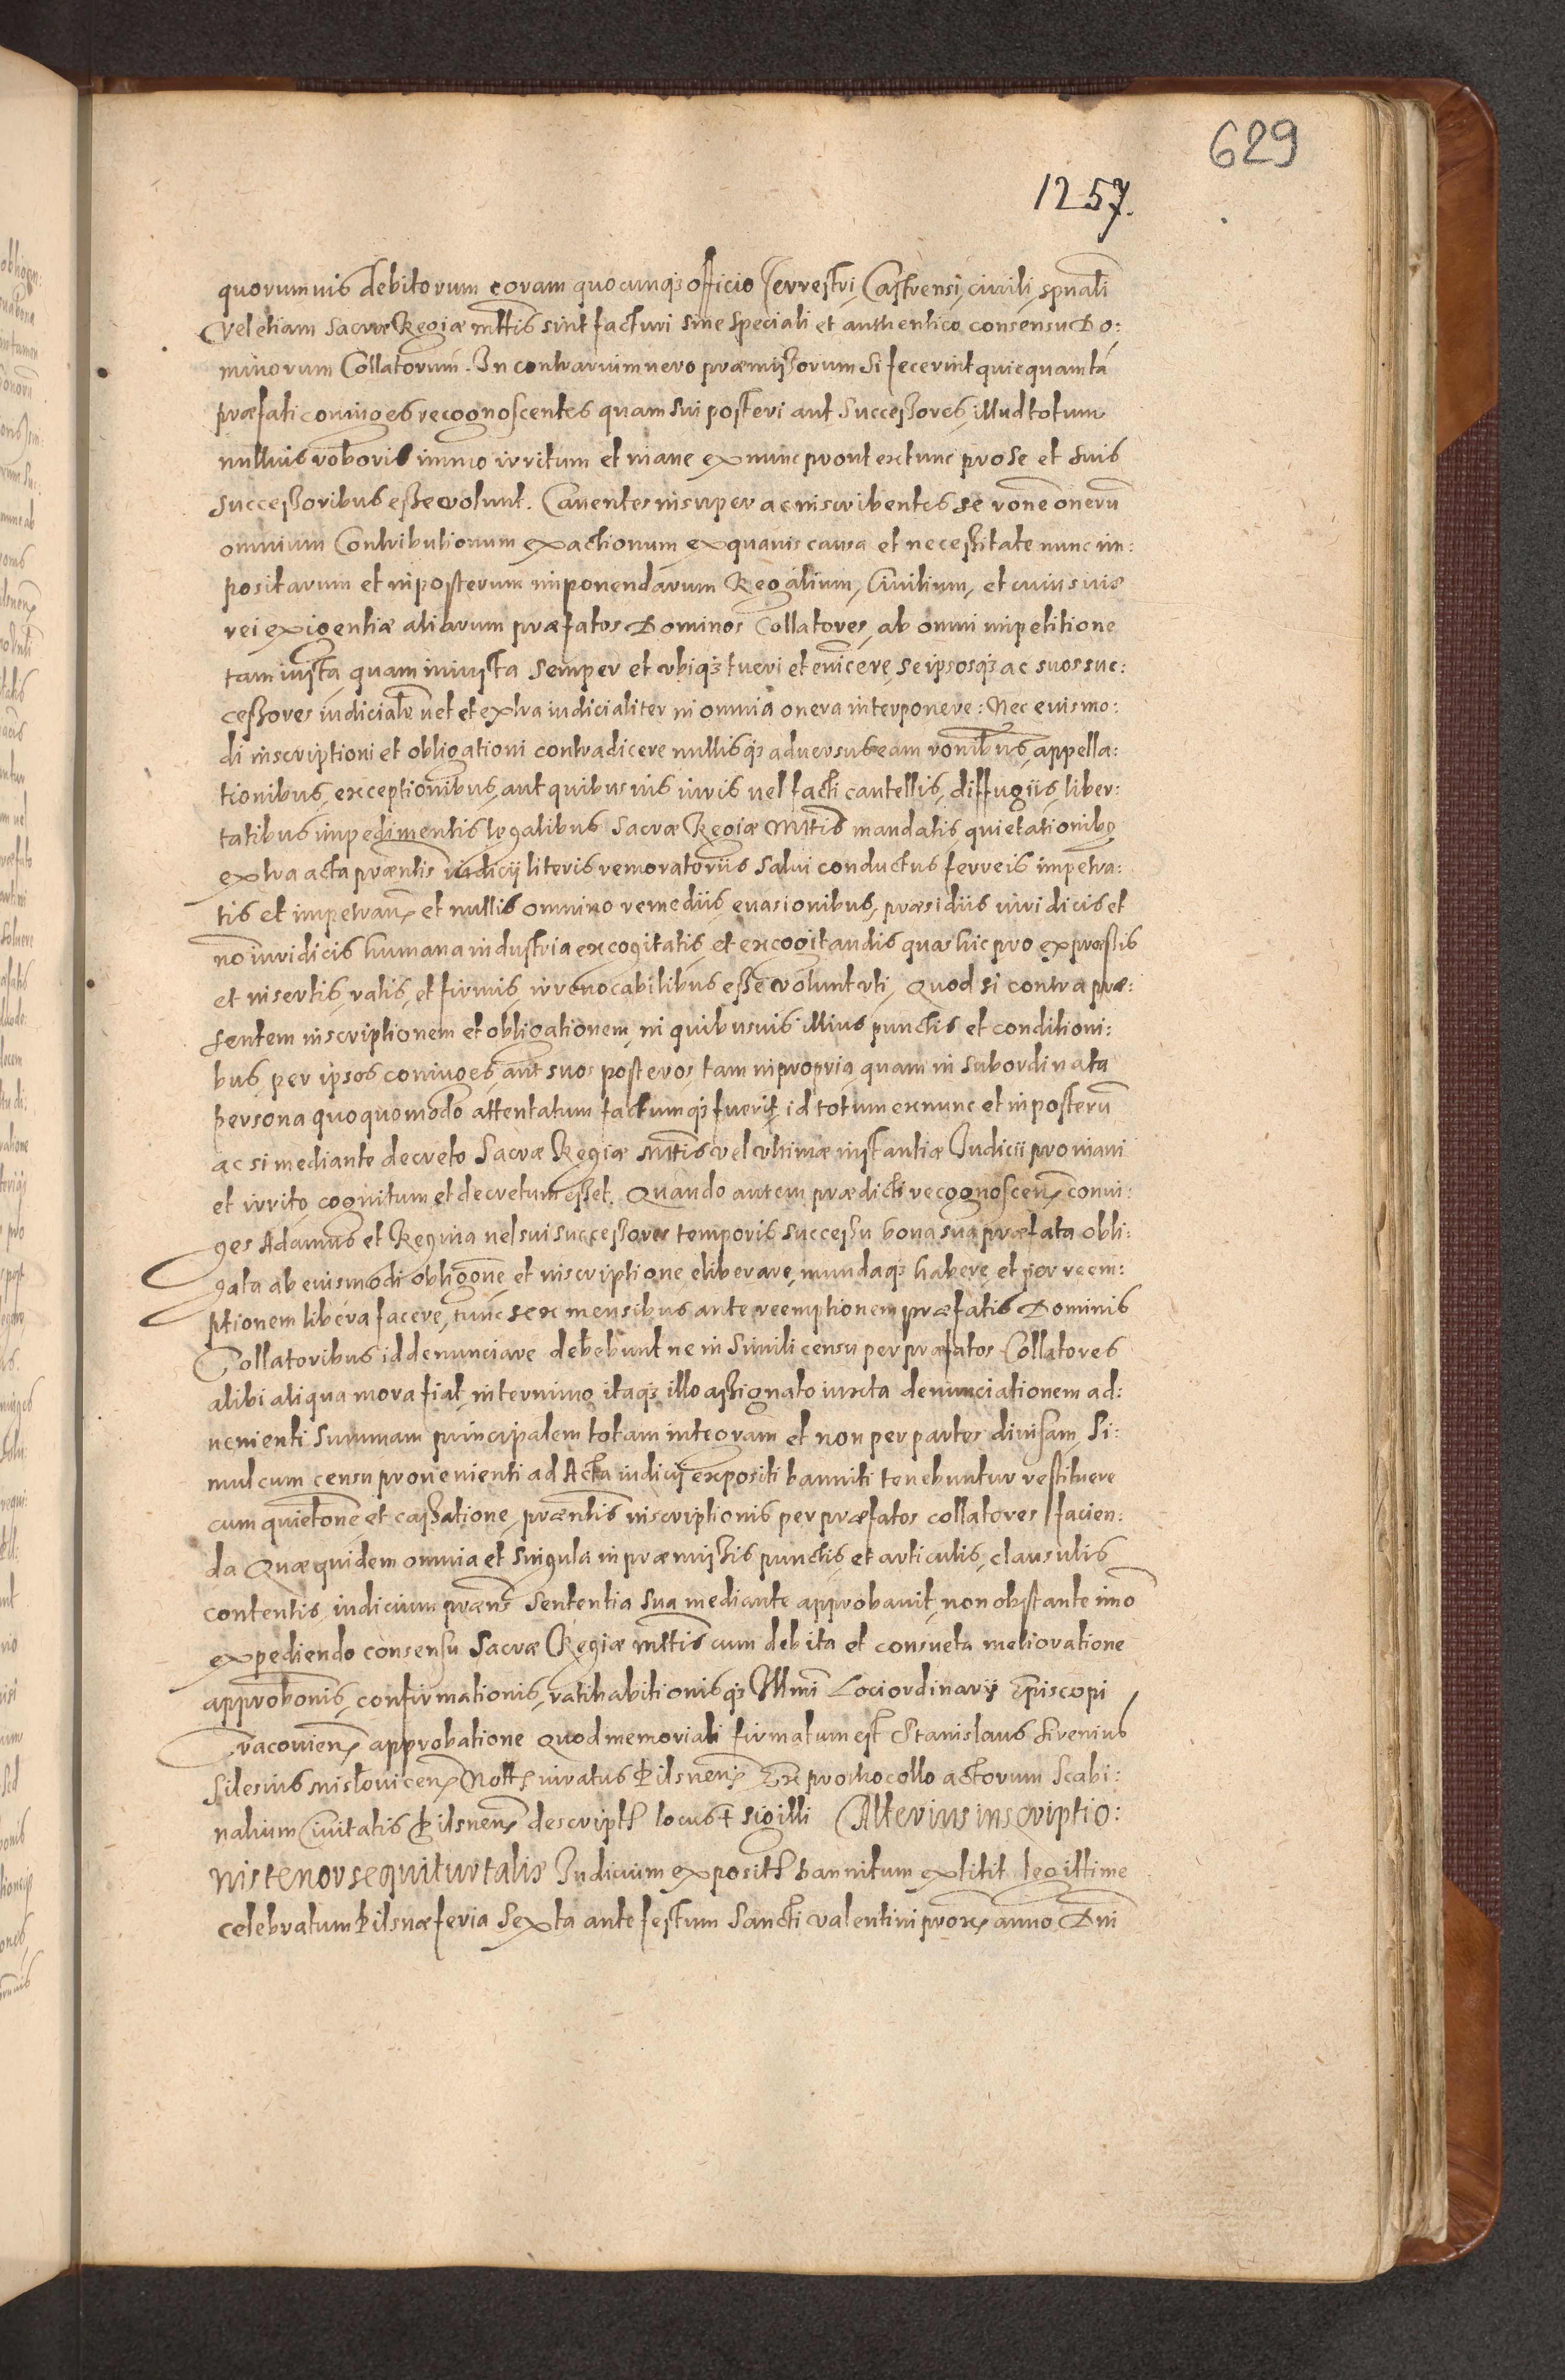 629
1257.
quorumuis debitorum coram quocunq₃ officio Terrestri, Castrensi, ciuili, spũali
Vel etiam Sacræ Regiæ mttis sint facturi sine speciali et authentico consensu Do:
minorum Collatorum. In contrarium uero præmissorum si fecerint quicquam tã
præfati coniuges recognoscentes quam sui posteri aut successores, illud totum
nullius roboris immo irritum et inane ex nunc prout extunc pro se et suis
successoribus esse volunt. Cauentes insuper ac inscribentes se rõne onerũ
omnium Contributionum exactionum ex quauis causa et necessitate nunc im:
positarum et in posterum imponendarum Regalium, Ciuilium, et cuiusuis
rei exigentiæ aliarum præfatos Dominos Collatores, ab omni impetitione
tam iusta, quam iniusta semper et vbiq₃ tueri et euicere, se ipsosq₃ ac suos suc:
cessores iudicialr̃ uel et extra iudicialiter in omnia onera interponere: Nec euismo:
di inscriptioni et obligationi contradicere nullisq₃ aduersus eam rõnibus, appella:
tionibus, exceptionibus, aut quibusuis iuris uel facti cautellis, diffugiis, liber:
tatibus impedimentis legalibus Sacræ Regiæ Mttis mandatis, quietationibꝯ
extra acta præntis iudicij literis remoratoriis salui conductus ferreis impetra:
tis et impetrañ et nullis omnino remediis, euasionibus, præsidiis iuridicis et
nõ iuridicis humana industria excogitatis, et excogitandis quas hic pro expræssis
et insertis, ratis, et firmis, irreuocabilibus esse volunt vti, Quod si contra præ:
sentem inscriptionem et obligationem, in quibusuis illius punctis et conditioni:
bus, per ipsos coniuges, aut suos posteros, tam in propria, quam in subordinata
persona quoquomodo attentatum factumq₃ fuerit, id totum exnunc et in posterũ
ac si mediante decreto Sacræ Regiæ Mttis vel vltimæ instantiæ Iudicii pro inani
et irrito cognitum et decretum esset. Quando autem prædicti recognoscen̄ coniu:
ges Adamus et Regina uel sui successores temporis successu bona sua præfata obli:
gata ab euismodi obligõne, et inscriptione eliberare, mundaq₃ habere, et per reem:
ptionem libera facere, tunc sex mensibus ante reemptionem præfatis Dominis
Collatoribus id denunciare debebunt ne in simili censu per præfatos Collatores
alibi aliqua mora fiat, in ternimo itaq₃ illo assignato iuxta denunciationem ad:
uenienti summam principalem totam integram et non per partes diuisam, Si:
mul cum censu prouenienti ad Acta iudicij expositi banniti tenebuntur restituere
cum quietõne et cassatione, præntis inscriptionis per præfatos collatores facien:
da Quæ quidem omnia et singula in præmissis punctis, et articulis, clausulis
contentis, iudicium præns sententia sua mediante approbauit, non obstante imõ
expediendo consensu Sacræ Regiæ mttis cum debita et consueta melioratione
approbõnis, confirmationis, ratihabitionisq₃ Illmi Loci ordinarij Episcopi
Cracouien̄ approbatione Quod memoriali firmatum est Stanislaus Sirenius
Silesius mislouicen̄ Nott̃ iuratus Pilsnen̄ Ex prothocollo actorum Scabi:
nalium Ciuitatis Pilsnen̄ descript̃ locus † sigilli Alterius inscriptio:
nis tenor sequitur talis Iudicium exposit̃ bannitum extitit legittime
celebratum Pilsnæ feria Sexta ante festum Sancti Valentini prox̃ anno Dni